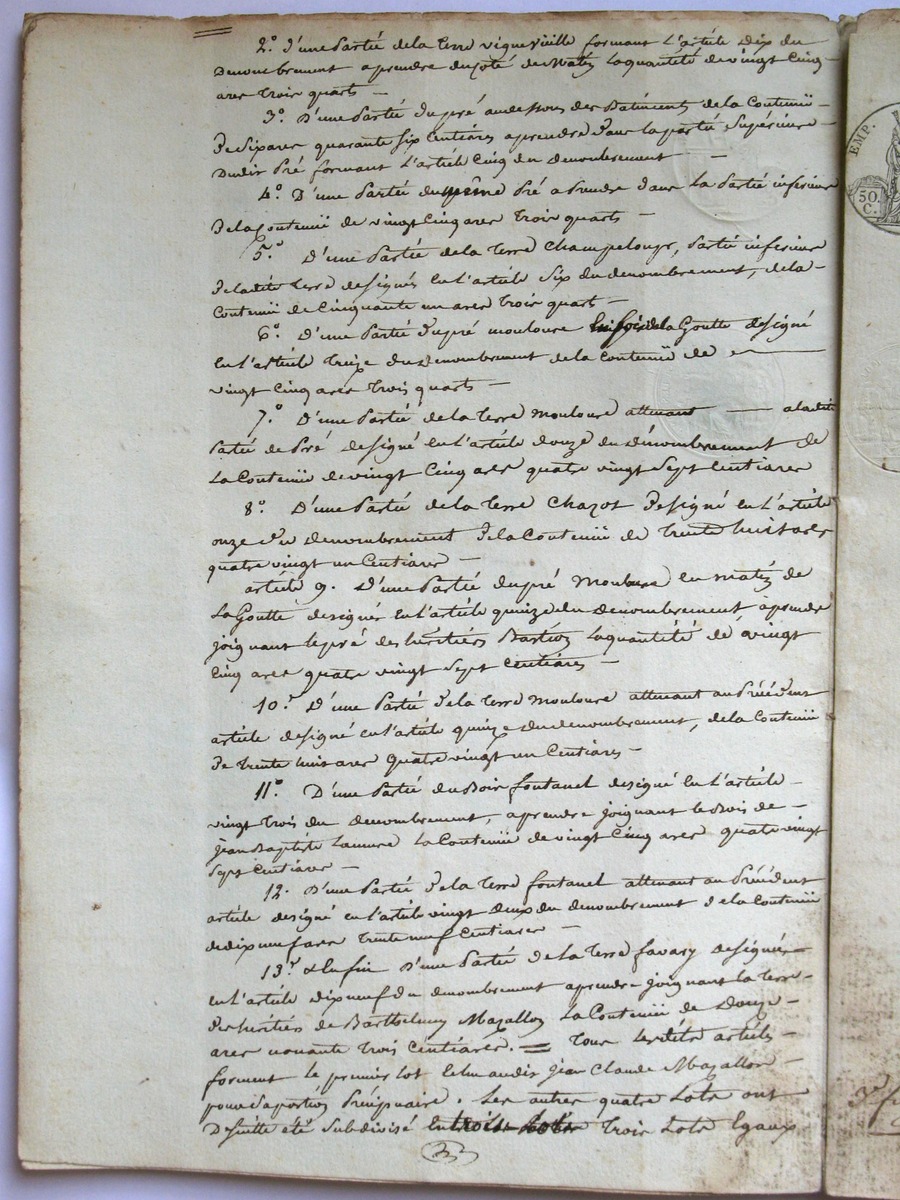 2.° d'une Partie de la terre vigne vieille formant L'article Dix du
Denombrement a prendre du coté de Matin la quantité de vingt Cinq
ares trois quarts —
3.° D'une Partie du pré au dessous des Batiments de la Contenü
De six ares quarante six Centiares a prendre dans la partie Supérieure
Dudit Pré formant L'article Cinq du denombrement —
4.° D'une Partie du même Pré a Prendre dans La Partie inferieure
De la Contenü de vingt Cinq ares Trois quarts —
5.° D'une Partie de la terre Champelong, Partie inferieure
De ladite terre designée en l'article Six du denombrement, de la
Contenü de Cinquante un ares Trois quart —
6.° D'une Partie du pré mouloure la Goutte designé
en l'article Treize du Denombrement de la Contenü de
vingt Cinq ares trois quarts —
7.° D'une Partie de la Terre Mouloure attenant — a ladite
Partie de Pré designé en l'article douze du Dénombrement de
La Contenü de vingt Cinq ares quatre vingt Sept Centiares
8.° D'une Partie de la Terre Chazot Designé en L'article
onze du denombrement De la Contenü de Trente huit ares
quatre vingt un Centiares —
article 9. D'une Partie du pré Mouloure en matin de
La Goutte designés en l'article quinze du denombrement a prendre
joignant le pré des heritiers Bastion La quantité de vingt
Cinq ares quatre vingt Sept Centiares —
10.° D'une Partie De la Terre Mouloure attenant au Précédent
article designé en l'article quinze du denombrement, de la Contenü
De Trente huit ares Quatre vingt un Centiares —
11.° D'une Partie du Bois fontanel designé en L'article
vingt Trois du denombrement, a prendre joignant le Bois de
Jean Baptiste Lamure La Contenü de vingt Cinq ares quatre vingt
Sept Centiares —
12. D'une Partie De la Terre fontanel attenant au Précédent
article designé en l'article vingt deux du denombrement de la Contenü
de dix neuf ares Trente neuf Centiares —
13.° & Enfin D'une Partie De la Terre favary designée
en L'article dix neuf du denombrement a prendre joignant la terre
des heritiers de Barthelemy Mazallon La Contenü de Douze
ares nonante Trois Centiares. = Tous lesdits articles
forment le premier lot Echu audit Jean Claude Mazallon
pour Sa portion Precipuaire. Les autres quatre Lots ont
De suitte été Subdivisé en trois Lots Trois Lots Egaux
EMP.
50
C.